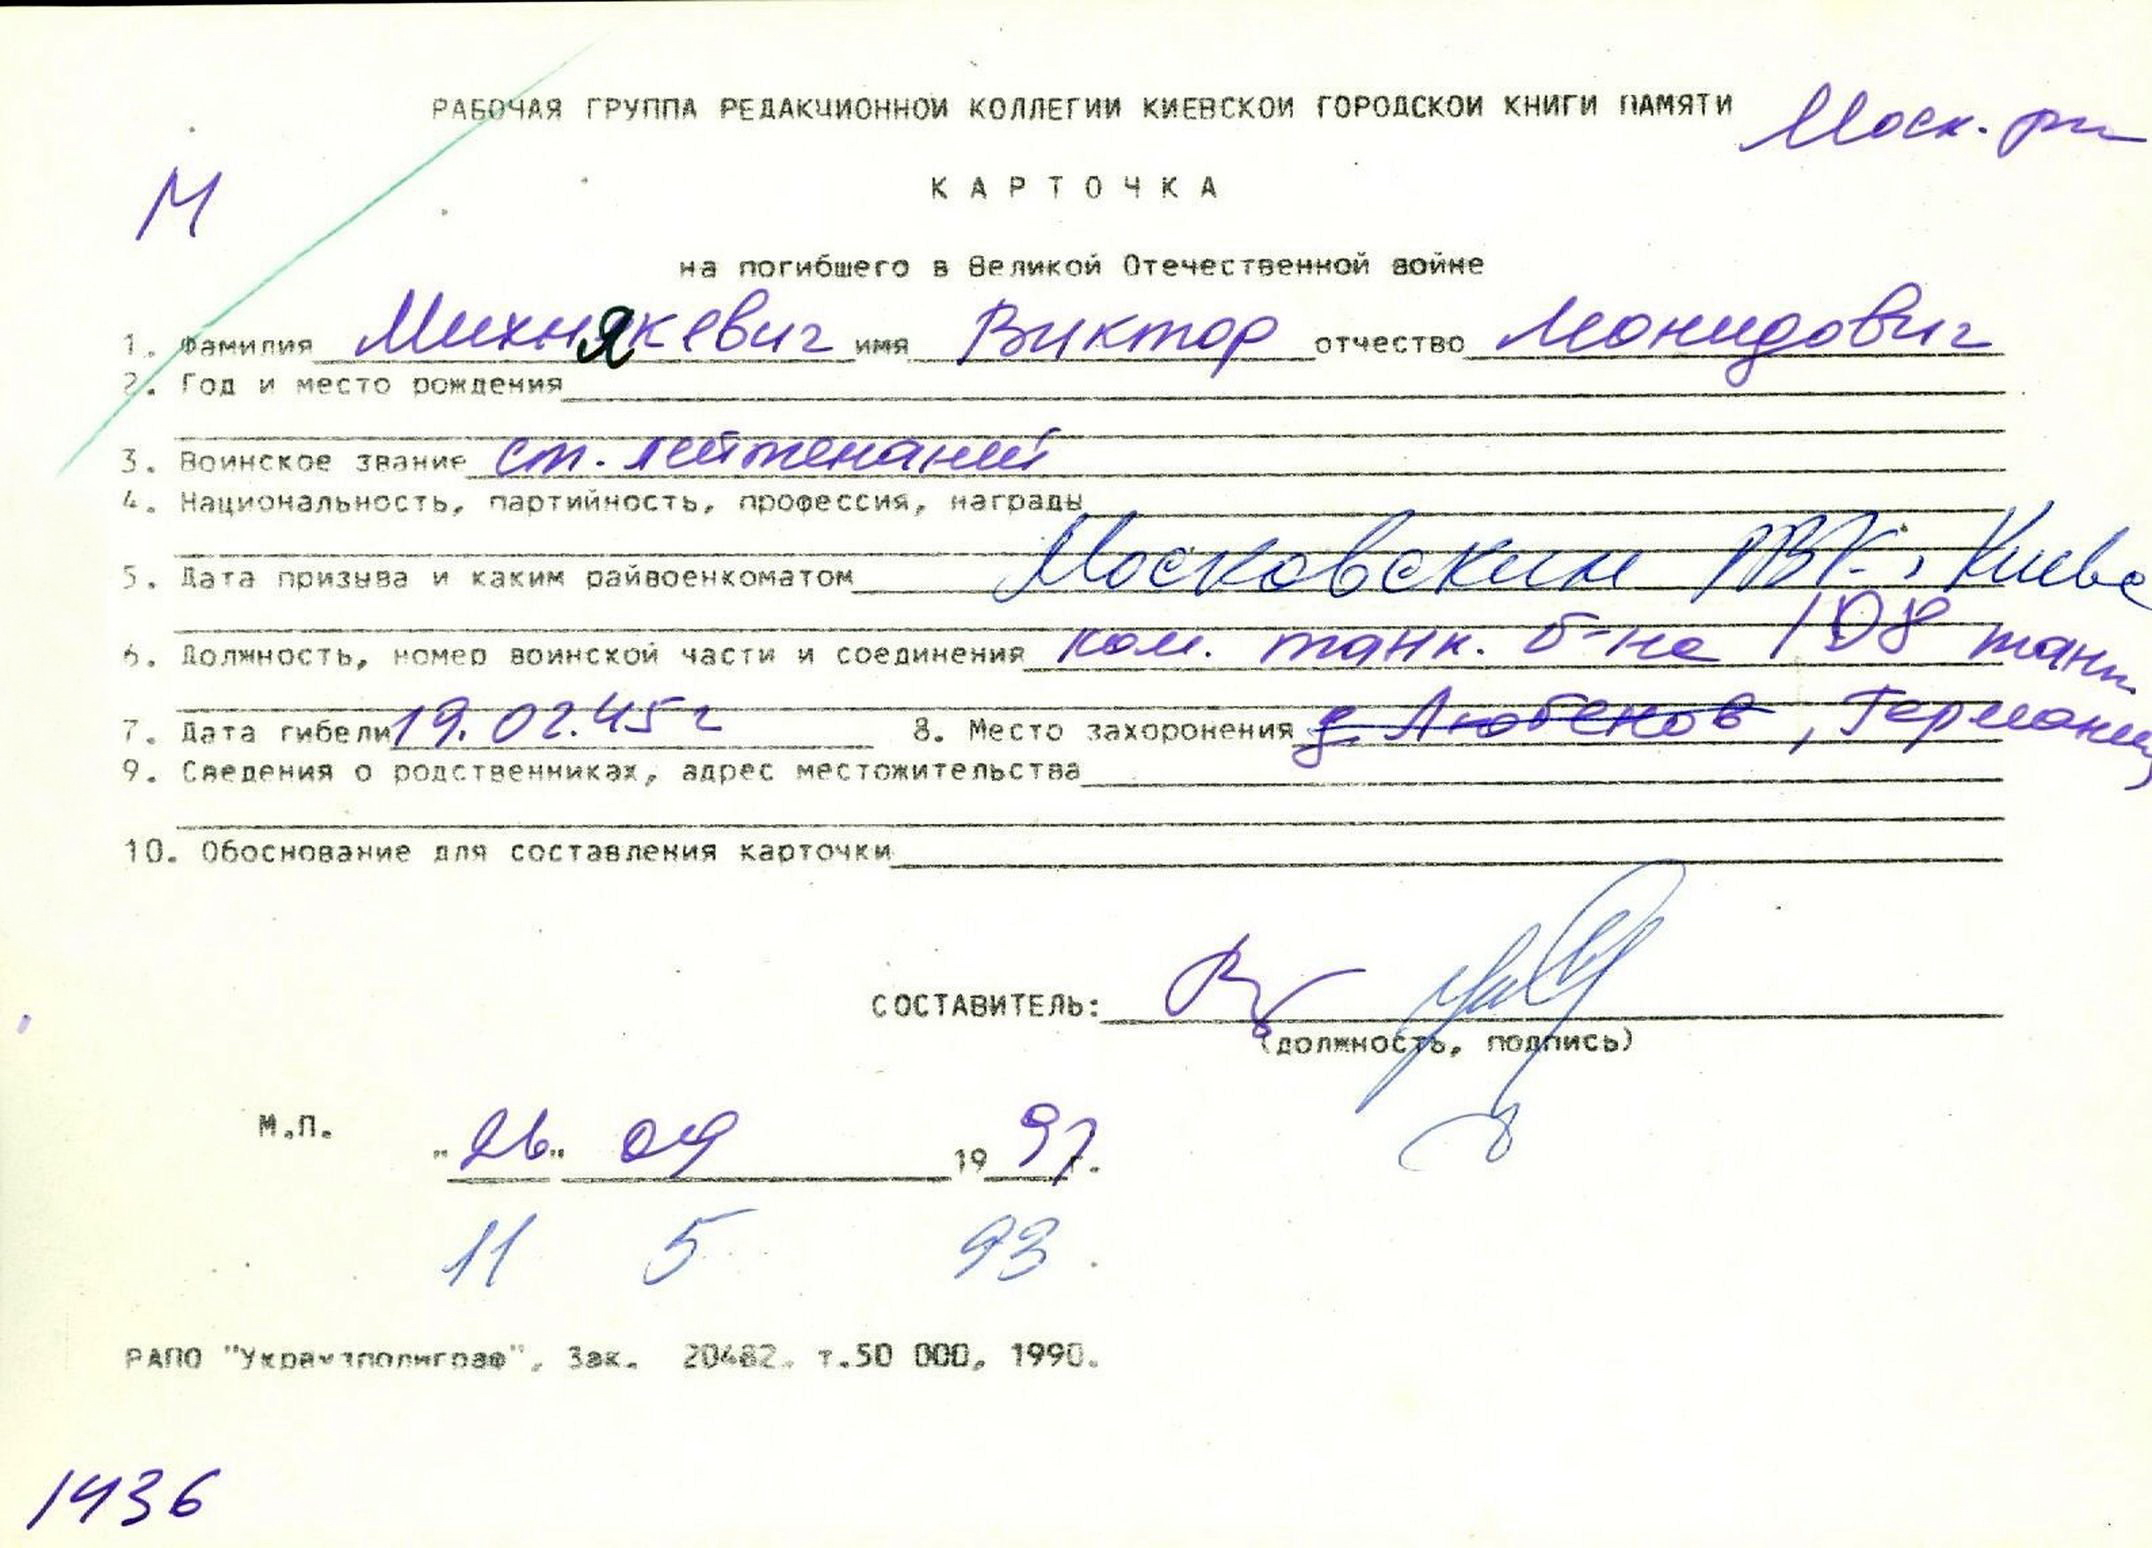 РАБОЧАЯ ГРУППА РЕДАКЦИОННОЙ КОЛЛЕГИИ КИЕВСКОЙ ГОРОДСКОЙ КНИГИ ПАМЯТИ Моск. рн
М
КАРТОЧКА
на погибшего в Великой Отечественной войне
1. Фамилия Михнякевич имя Виктор отчество Леонидович
2. Год и место рождения
3. Воинское звание ст. лейтенант
4. Национальность, партийность, профессия, награды
5. Дата призыва и каким райвоенкоматом Московским РВК г. Киева
6. Должность, номер воинской части и соединения ком. танк. б-на 108 танк.
7. Дата гибели 19.02.45 г 8. Место захоронения д. Любенов, Германия
9. Сведения о родственниках, адрес местожительства
10. Обоснование для составления карточки
СОСТАВИТЕЛЬ:
(должность, подпись)
М.П. "26" 09 1991 г.
11 5 93
РАПО "Укрвузполиграф", Зак. 20482. т.50 000, 1990.
1436